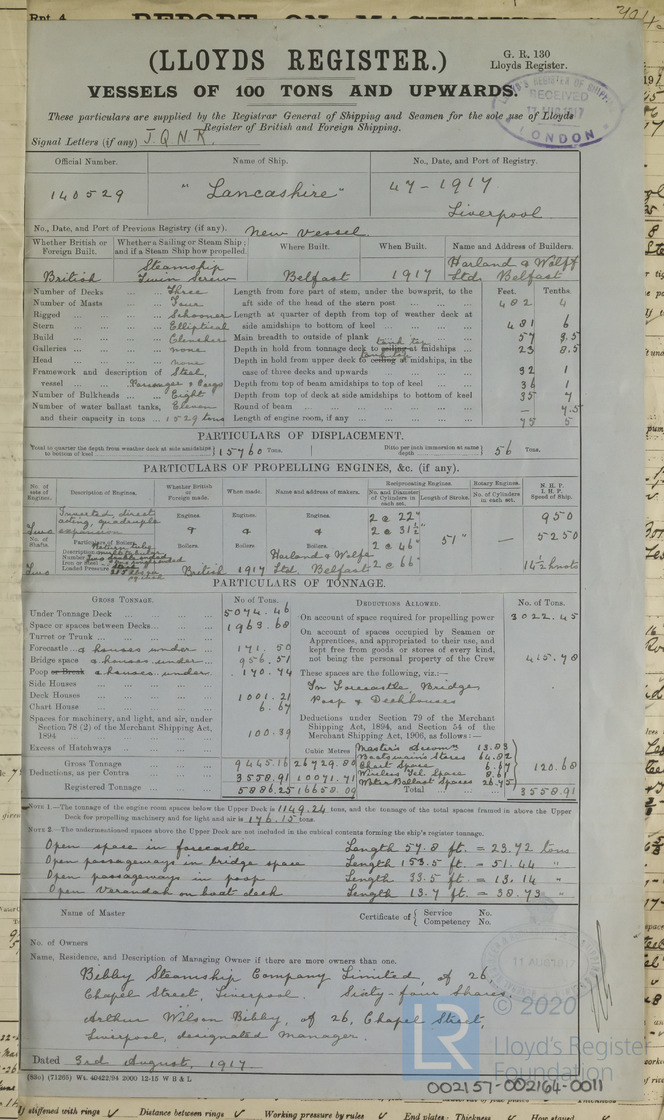 Rpt. 4.
(LLOYDS REGISTER.)
G. R. 130
Lloyds Register.
VESSELS OF 100 TONS AND UPWARDS.
LLOYD'S REGISTER OF SHIPPING
RECEIVED
AUG 1917
LONDON
These particulars are supplied by the Registrar General of Shipping and Seamen for the sole use of Lloyds
Register of British and Foreign Shipping.
Signal Letters (if any) J.Q.N.K.
Official Number. Name of Ship. No., Date, and Port of Registry.
140529 "Lancashire" 47-1917
Liverpool
No., Date, and Port of Previous Registry (if any). New Vessel
Whether British or Foreign Built. Whether a Sailing or Steam Ship; and if a Steam Ship how propelled. Where Built. When Built. Name and Address of Builders.
British Steamship Twin Screw Belfast 1917 Harland & Wolff Ltd. Belfast
Feet. Tenths.
Number of Decks Three Length from fore part of stem, under the bowsprit, to the
Number of Masts Four aft side of the head of the stern post 482 4
Rigged Schooner Length at quarter of depth from top of weather deck at
Stern Elliptical side amidships to bottom of keel 481 6
Build Clencher Main breadth to outside of plank 57 3.5
Galleries none Depth in hold from tonnage deck to ceiling tank top at midships 23 8.5
Head none Depth in hold from upper deck to ceiling tank top at midships, in the
Framework and description of Steel, case of three decks and upwards 32 1
vessel Passenger & Cargo Depth from top of beam amidships to top of keel 36 1
Number of Bulkheads Eight Depth from top of deck at side amidships to bottom of keel 35 7
Number of water ballast tanks, Eleven Round of beam — 7.5
and their capacity in tons 1529 tons Length of engine room, if any 75 5
PARTICULARS OF DISPLACEMENT.
Total to quarter the depth from weather deck at side amidships to bottom of keel 15760 Tons. Ditto per inch immersion at same depth 56 Tons.
PARTICULARS OF PROPELLING ENGINES, &c. (if any).
No. of sets of Engines. Description of Engines. Whether British or Foreign made. When made. Name and address of makers. Reciprocating Engines. Rotary Engines. N.H.P. I.H.P. Speed of Ship.
No. and Diameter of Cylinders in each set. Length of Stroke. No. of Cylinders in each set.
Two Inverted direct acting, quadruple expansion Engines. Engines. Engines. 2 @ 22" 950
No. of Shafts. Particulars of Boilers. 2 @ 31½" 51" — 5250
Description multitubular Boilers. Boilers. Boilers. 2 @ 46"
Number
Iron or Steel
Loaded Pressure
Two British 1917 Harland & Wolff Ltd. Belfast 2 @ 66" 14½ knots
PARTICULARS OF TONNAGE.
GROSS TONNAGE. No of Tons. DEDUCTIONS ALLOWED. No. of Tons.
Under Tonnage Deck 5074.46 On account of space required for propelling power 3022.45
Space or spaces between Decks 1963.68 On account of spaces occupied by Seamen or
Turret or Trunk Apprentices, and appropriated to their use, and
Forecastle & houses under 171.50 kept free from goods or stores of every kind,
Bridge space & houses under 956.51 not being the personal property of the Crew 415.78
Poop or Break & houses under 170.74 These spaces are the following, viz.:—
Side Houses In Forecastle Bridge
Deck Houses 1001.21 Poop & Deckhouses
Chart House 6.67
Spaces for machinery, and light, and air, under Deductions under Section 79 of the Merchant
Section 78 (2) of the Merchant Shipping Act, 1894 100.39 Shipping Act, 1894, and Section 54 of the
Merchant Shipping Act, 1906, as follows:—
Excess of Hatchways Cubic Metres Master's Accom. 13.83
Boatswain's Stores 64.82
Gross Tonnage 9445.16 26729.80 Chart Space 6.67 120.68
Deductions, as per Contra 3558.91 10071.71 Wireless Tel. Space 8.61
Water Ballast Spaces 26.75
Registered Tonnage 5886.25 16658.09 Total 3558.91
NOTE 1.—The tonnage of the engine room spaces below the Upper Deck is 1149.24 tons, and the tonnage of the total spaces framed in above the Upper
Deck for propelling machinery and for light and air is 176.15 tons.
NOTE 2.—The undermentioned spaces above the Upper Deck are not included in the cubical contents forming the ship's register tonnage.
Open space in forecastle Length 57.8 ft. = 23.72 tons
Open passageways in bridge space Length 153.5 ft. = 51.44 "
Open passageways in poop Length 33.5 ft. = 13.14 "
Open Verandah on boat deck Length 13.7 ft. = 38.73 "
Name of Master Certificate of { Service No.
Competency No.
No. of Owners
Name, Residence, and Description of Managing Owner if there are more owners than one.
11 AUG 1917
Bibby Steamship Company Limited, of 26
Chapel Street, Liverpool. Sixty-four Shares.
Arthur Wilson Bibby, of 26, Chapel Street,
Liverpool, designated manager.
Dated 3rd August, 1917
(83o) (71265) Wt. 40422/94 2000 12-15 W B & L
© 2020
LR
Lloyd's Register
Foundation
002157-002164-0011
If stiffened with rings Distance between rings Working pressure by rules End plates: Thickness How stayed